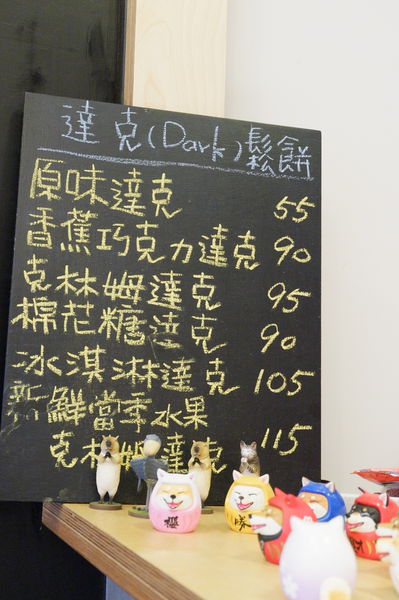 達克(Dark)鬆餅
原味達克 55
香蕉巧克力達克 90
克林姆達克 95
棉花糖達克 90
冰淇淋達克 105
新鮮當季水果
克林姆達克 115
櫻
勝